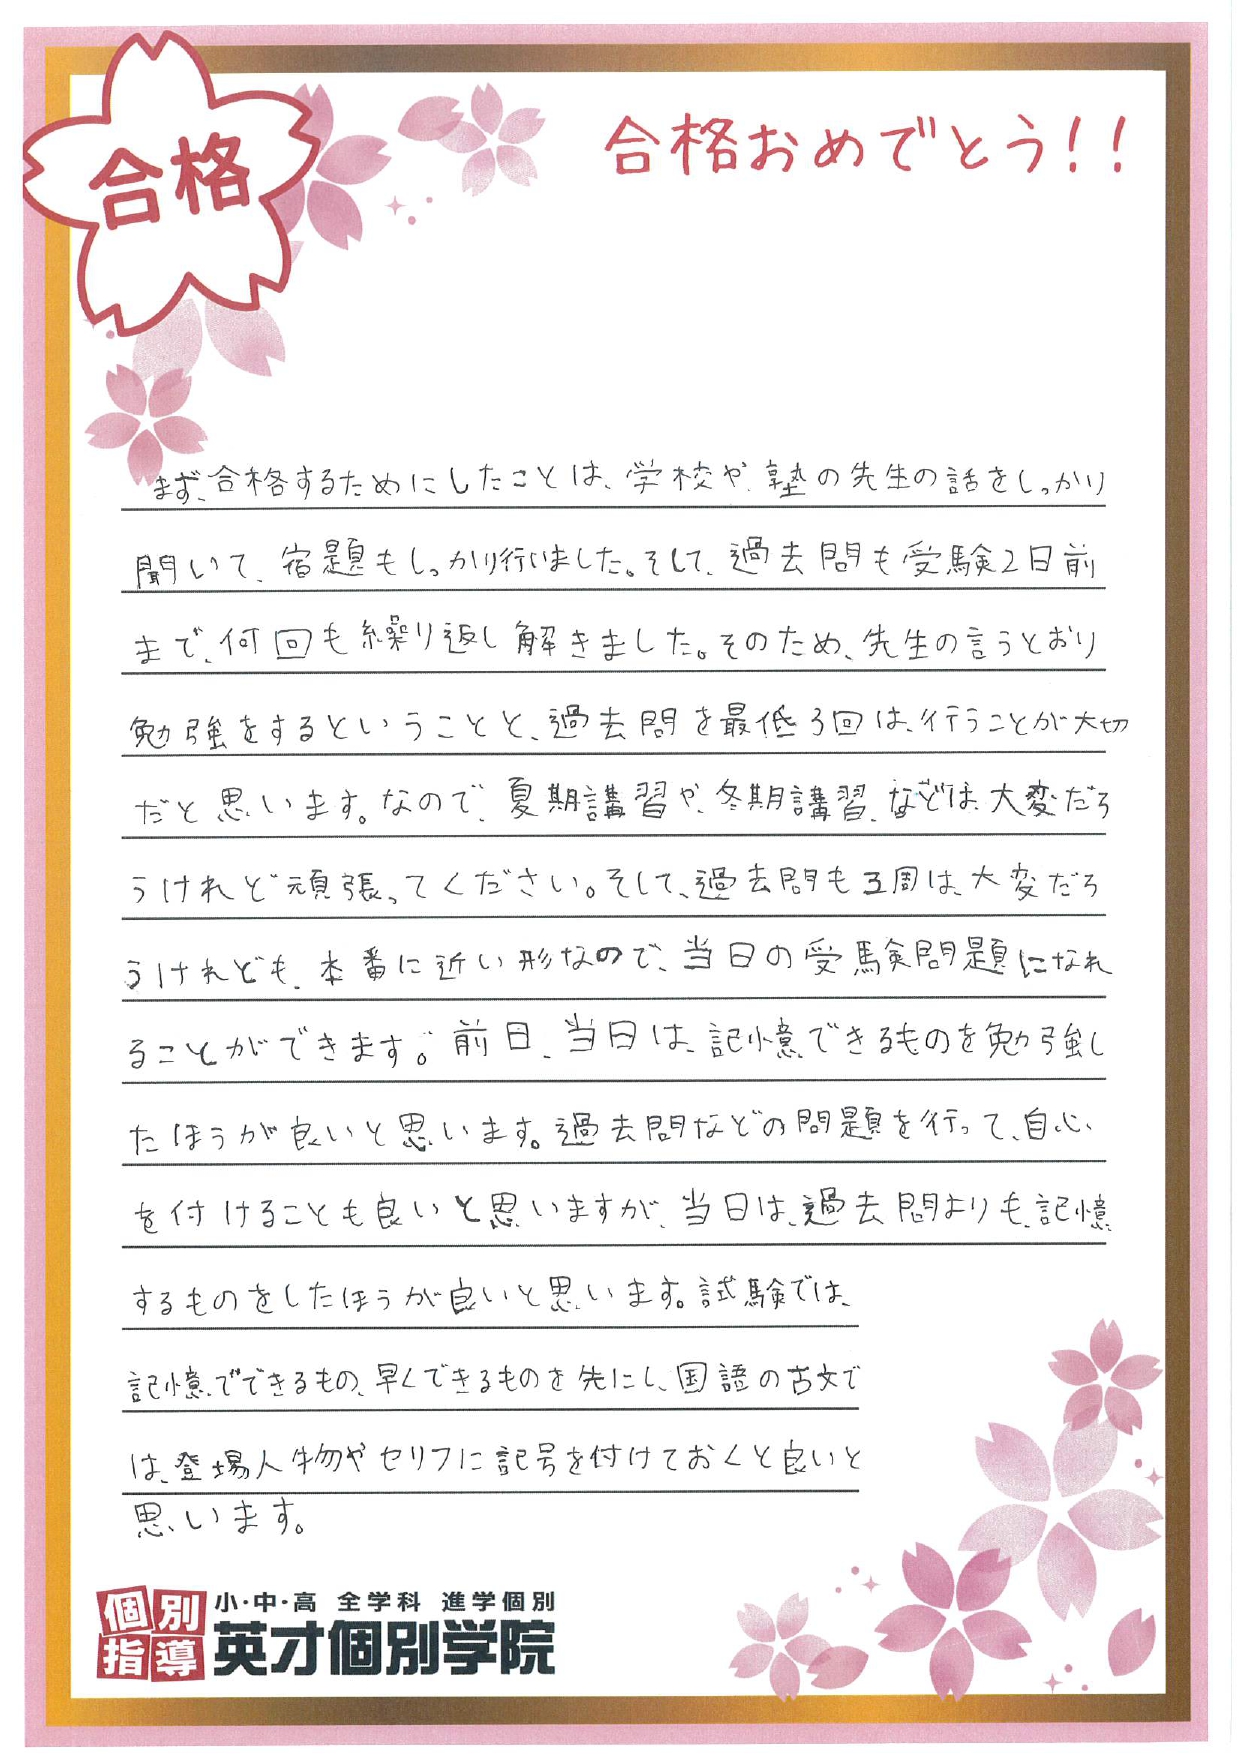 合格
合格おめでとう!!
まず、合格するためにしたことは、学校や、塾の先生の話をしっかり
聞いて、宿題もしっかり行いました。そして、過去問も受験2日前
まで、何回も繰り返し解きました。そのため、先生の言うとおり
勉強をするということと、過去問を最低3回は、行うことが大切
だと思います。なので、夏期講習や、冬期講習、などは、大変だろ
うけれど頑張ってください。そして、過去問も3周は、大変だろ
うけれども、本番に近い形なので、当日の受験問題になれ
ることができます。前日、当日は、記憶できるものを勉強し
たほうが良いと思います。過去問などの問題を行って、自心
を付けることも良いと思いますが、当日は、過去問よりも、記憶
するものをしたほうが良いと思います。試験では、
記憶でできるもの、早くできるものを先にし、国語の古文で
は、登場人物やセリフに記号を付けておくと良いと
思います。
個別指導
小・中・高 全学科 進学個別
英才個別学院